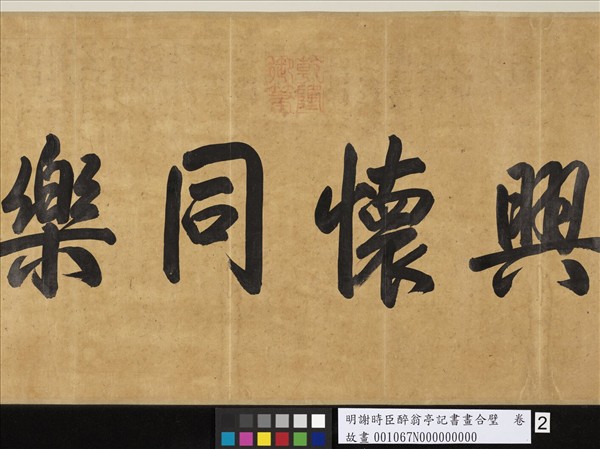 興懷同樂
乾隆御筆
明謝時臣醉翁亭記書畫合璧 卷
故畫 001067N000000000
2